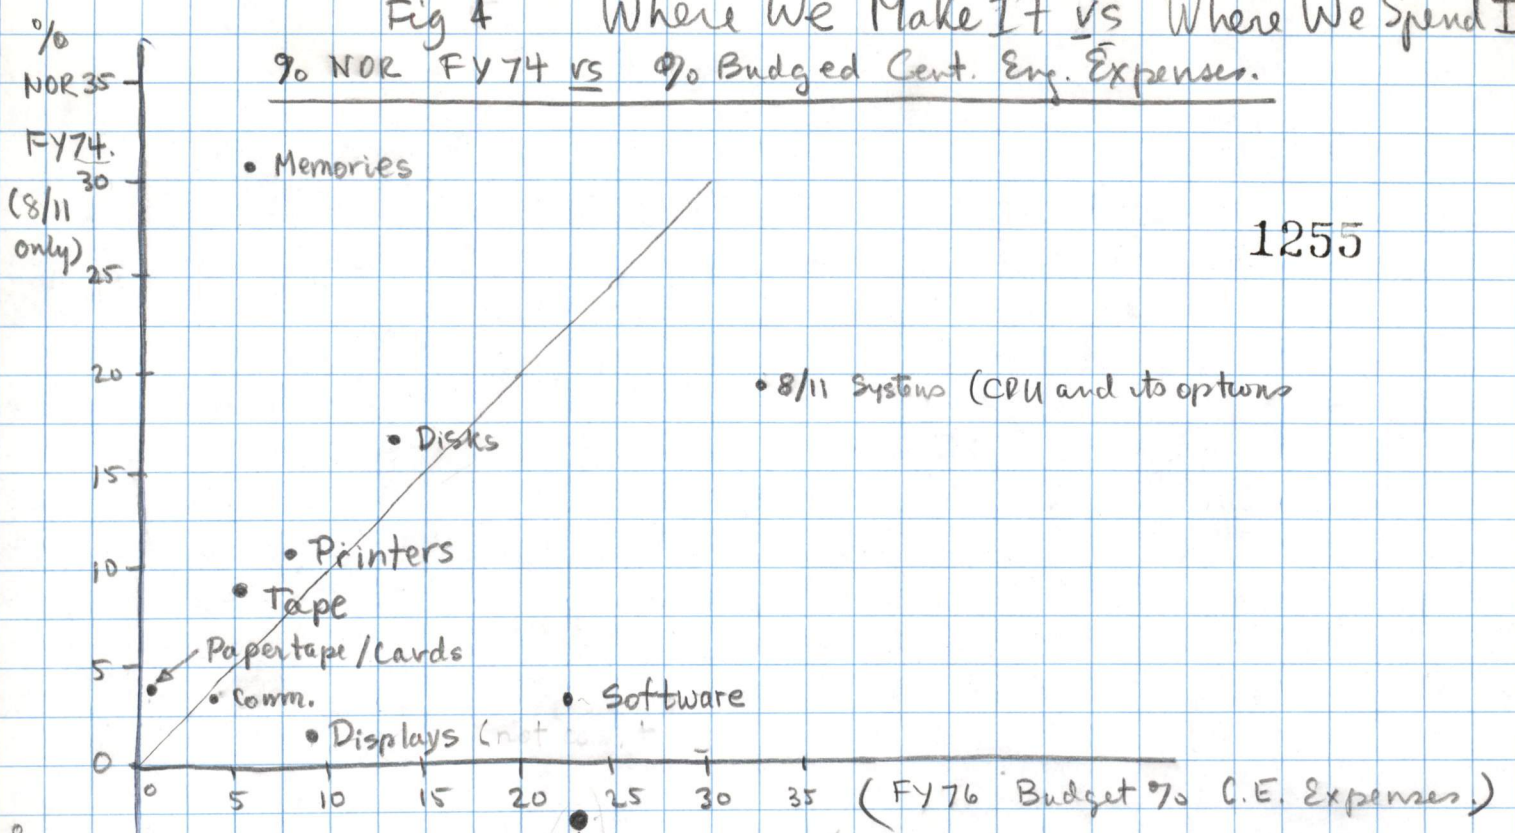 Fig 4 Where We Make It vs Where We Spend I
% NOR FY74 vs % Budged Cent. Eng. Expenses.
%
NOR 35
FY74.
30
(8/11
only)
25
20
15
10
5
0
• Memories
1255
• 8/11 Systems (CPU and its options
• Disks
• Printers
• Tape
Papertape/Cards
• Comm.
• Software
• Displays (not
0 5 10 15 20 25 30 35 (FY76 Budget % C.E. Expenses.)